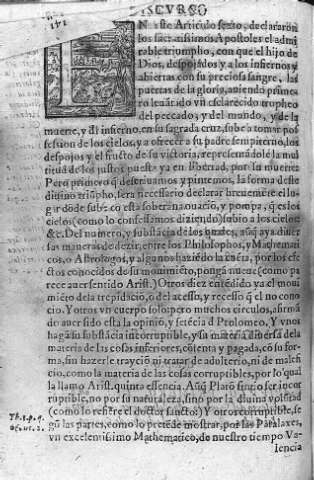 DISCVRSO
EN este Articulo sexto, declararon
los sacratissimos Apostoles el admi
rable triumpho, con que el hijo de
Dios, despojados ya los infiernos y
abiertas con su preciosa sangre, las
puertas de la gloria, auiendo prime
ro leuãtado vn esclarecido tropheo
del peccado, y del mundo, y de la
muerte, y dl infierno, en su sagrada cruz, sube a tomar pos
session de los cielos, y a ofrecer a su padre sempiterno, los
despojos y el fructo de su victoria, representãdole la mul
titud de los justos puesta ya en libertad, por su muerte
Pero primero q̃ descriuamos y pintemos, la forma deste
diuino triũpho, sera necessario declarar breuemẽte el lu
gar dõde sube cõ esta soberana ouaciõ, y pompa, q̃ es los
cielos (como lo confessamos diziendo) subio a los cielos
&c. Del numero, y substãcia de los quales, aunq̃ aya diuer
sas maneras de dezir, entre los Philosophos, y Mathemati
cos, o Astrologos, y algunos haziẽdo la cuẽta, por los efe
ctos conocidos de su mouimiẽto, pongã nueue (como pa
rece auer sentido Arist.) Otros diez entẽdido ya el moui
miẽto de la trepidaciõ, o del accesso, y recesso q̃ el no cono
cio. Y otros vn cuerpo solo pero muchos circulos, afirmã
do auer sido esta la opiniõ, y setẽcia de Ptolomeo. Y vnos
hagã su substãcia incorruptible, y su materia diuersa dela
materia de las cosas inferiores, cõtenta y pagada, cõ su for
ma, sin hazerle trayciõ ni tratar de adulterio, ni de malefi
cio, como la materia de las cosas corruptibles, por lo qual
la llamo Arist. quinta essencia. Aũq̃ Platõ sintio ser incor
ruptible, no por su naturaleza, sino por la diuina volũtad
(como lo refiere el doctor sanctos) Y otros corruptible, se
gũ las partes, como lo pretẽde mostrar, por las Paralaxes,
vn excelentissimo Mathematico, de nuestro tiempo Va-
lencia
Th. 1. p. q.